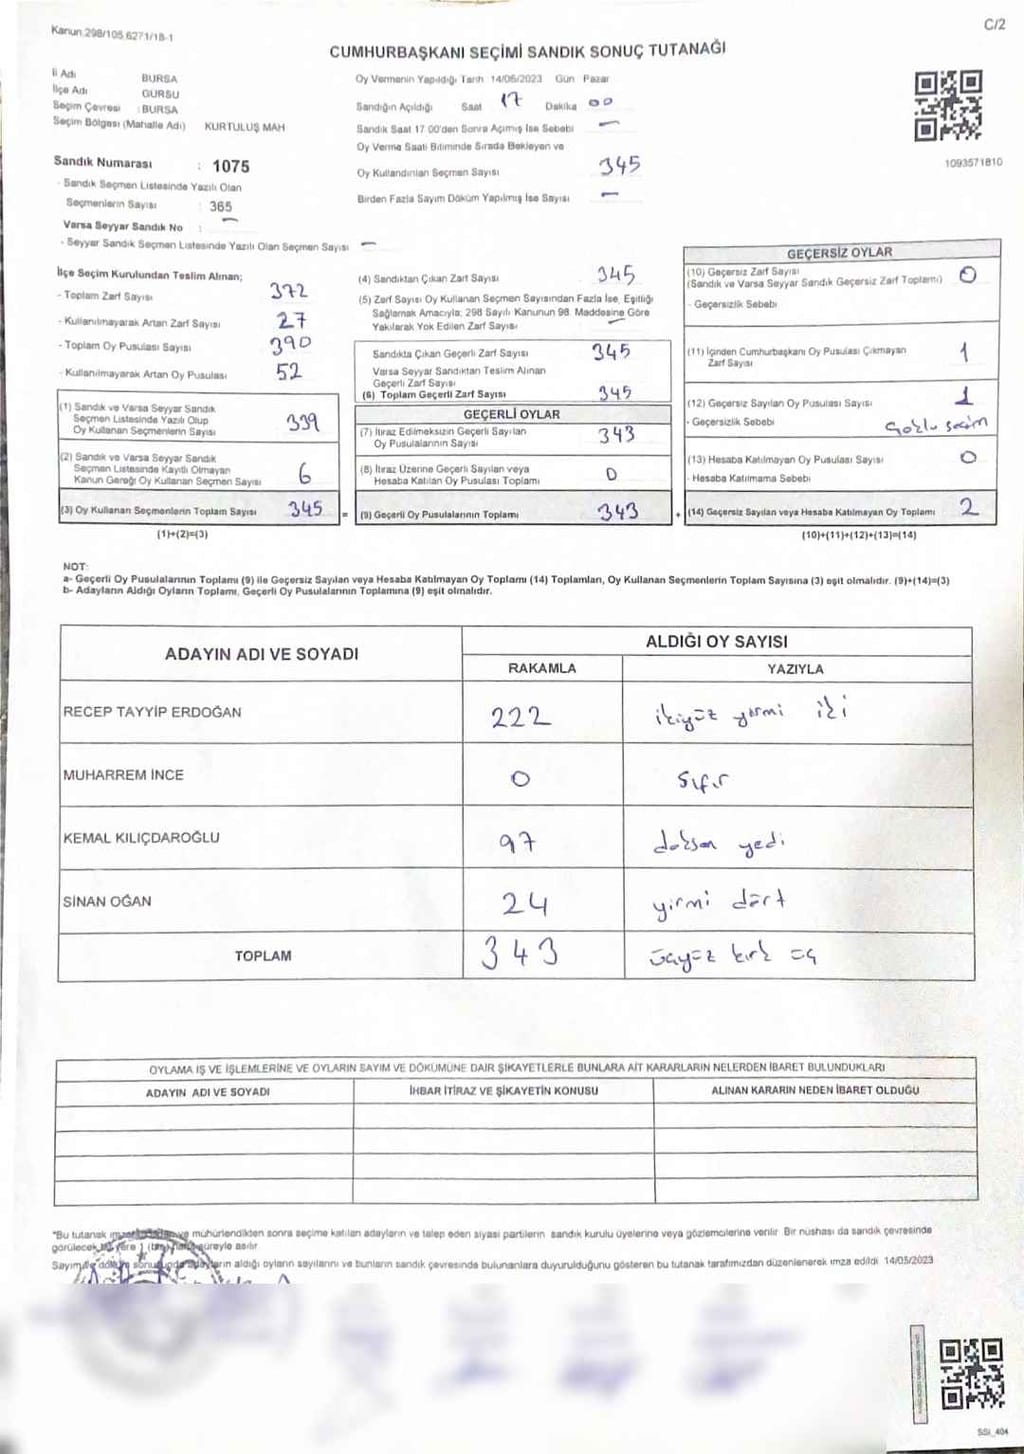 Kanun 298/105 6271/18-1
C/2
CUMHURBAŞKANI SEÇİMİ SANDIK SONUÇ TUTANAĞI
İl Adı BURSA
İlçe Adı GÜRSU
Seçim Çevresi : BURSA
Seçim Bölgesi (Mahalle Adı) KURTULUŞ MAH
Sandık Numarası : 1075
- Sandık Seçmen Listesinde Yazılı Olan
Seçmenlerin Sayısı : 365
Varsa Seyyar Sandık No : -
- Seyyar Sandık Seçmen Listesinde Yazılı Olan Seçmen Sayısı -
Oy Vermenin Yapıldığı Tarih 14/05/2023 Gün Pazar
Sandığın Açıldığı Saat 17 Dakika 00
Sandık Saat 17 00'den Sonra Açımış İse Sebebi -
Oy Verme Saati Bitiminde Sırada Bekleyen ve
Oy Kullandırılan Seçmen Sayısı 345
Birden Fazla Sayım Döküm Yapılmış İse Sayısı -
1093571810
İlçe Seçim Kurulundan Teslim Alınan;
- Toplam Zarf Sayısı 372
- Kullanılmayarak Artan Zarf Sayısı 27
- Toplam Oy Pusulası Sayısı 390
- Kullanılmayarak Artan Oy Pusulası 52
(1) Sandık ve Varsa Seyyar Sandık
Seçmen Listesinde Yazılı Olup
Oy Kullanan Seçmenlerin Sayısı 339
(2) Sandık ve Varsa Seyyar Sandık
Seçmen Listesinde Kayıtlı Olmayan
Kanun Gereği Oy Kullanan Seçmen Sayısı 6
(3) Oy Kullanan Seçmenlerin Toplam Sayısı 345 =
(1)+(2)=(3)
(4) Sandıktan Çıkan Zarf Sayısı 345
(5) Zarf Sayısı Oy Kullanan Seçmen Sayısından Fazla İse, Eşitliği
Sağlamak Amacıyla; 298 Sayılı Kanunun 98. Maddesine Göre
Yakılarak Yok Edilen Zarf Sayısı -
Sandıkta Çıkan Geçerli Zarf Sayısı 345
Varsa Seyyar Sandıktan Teslim Alınan
Geçerli Zarf Sayısı
(6) Toplam Geçerli Zarf Sayısı 345
GEÇERLİ OYLAR
(7) İtiraz Edilmeksizin Geçerli Sayılan
Oy Pusulalarının Sayısı 343
(8) İtiraz Üzerine Geçerli Sayılan veya
Hesaba Katılan Oy Pusulası Toplamı 0
(9) Geçerli Oy Pusulalarının Toplamı 343 +
GEÇERSİZ OYLAR
(10) Geçersiz Zarf Sayısı
(Sandık ve Varsa Seyyar Sandık Geçersiz Zarf Toplamı) 0
- Geçersizlik Sebebi
(11) İçinden Cumhurbaşkanı Oy Pusulası Çıkmayan
Zarf Sayısı 1
(12) Geçersiz Sayılan Oy Pusulası Sayısı 1
- Geçersizlik Sebebi Çoklu seçim
(13) Hesaba Katılmayan Oy Pusulası Sayısı 0
- Hesaba Katılmama Sebebi
(14) Geçersiz Sayılan veya Hesaba Katılmayan Oy Toplamı 2
(10)+(11)+(12)+(13)=(14)
NOT:
a- Geçerli Oy Pusulalarının Toplamı (9) ile Geçersiz Sayılan veya Hesaba Katılmayan Oy Toplamı (14) Toplamları, Oy Kullanan Seçmenlerin Toplam Sayısına (3) eşit olmalıdır. (9)+(14)=(3)
b- Adayların Aldığı Oyların Toplamı, Geçerli Oy Pusulalarının Toplamına (9) eşit olmalıdır.
ADAYIN ADI VE SOYADI
ALDIĞI OY SAYISI
RAKAMLA YAZIYLA
RECEP TAYYİP ERDOĞAN 222 ikiyüz yirmi iki
MUHARREM İNCE 0 Sıfır
KEMAL KILIÇDAROĞLU 97 doksan yedi
SİNAN OĞAN 24 yirmi dört
TOPLAM 343 üçyüz kırk üç
OYLAMA İŞ VE İŞLEMLERİNE VE OYLARIN SAYIM VE DÖKÜMÜNE DAİR ŞİKAYETLERLE BUNLARA AİT KARARLARIN NELERDEN İBARET BULUNDUKLARI
ADAYIN ADI VE SOYADI İHBAR İTİRAZ VE ŞİKAYETİN KONUSU ALINAN KARARIN NEDEN İBARET OLDUĞU
*Bu tutanak ve mühürlendikten sonra seçime katılan adayların ve talep eden siyasi partilerin sandık kurulu üyelerine veya gözlemcilerine verilir Bir nüshası da sandık çevresinde
görülecek bir yere 1 süreyle asılır
Sayım ve döküm adayların aldığı oyların sayılarını ve bunların sandık çevresinde bulunanlara duyurulduğunu gösteren bu tutanak tarafımızdan düzenlenerek imza edildi 14/05/2023
SSI_404